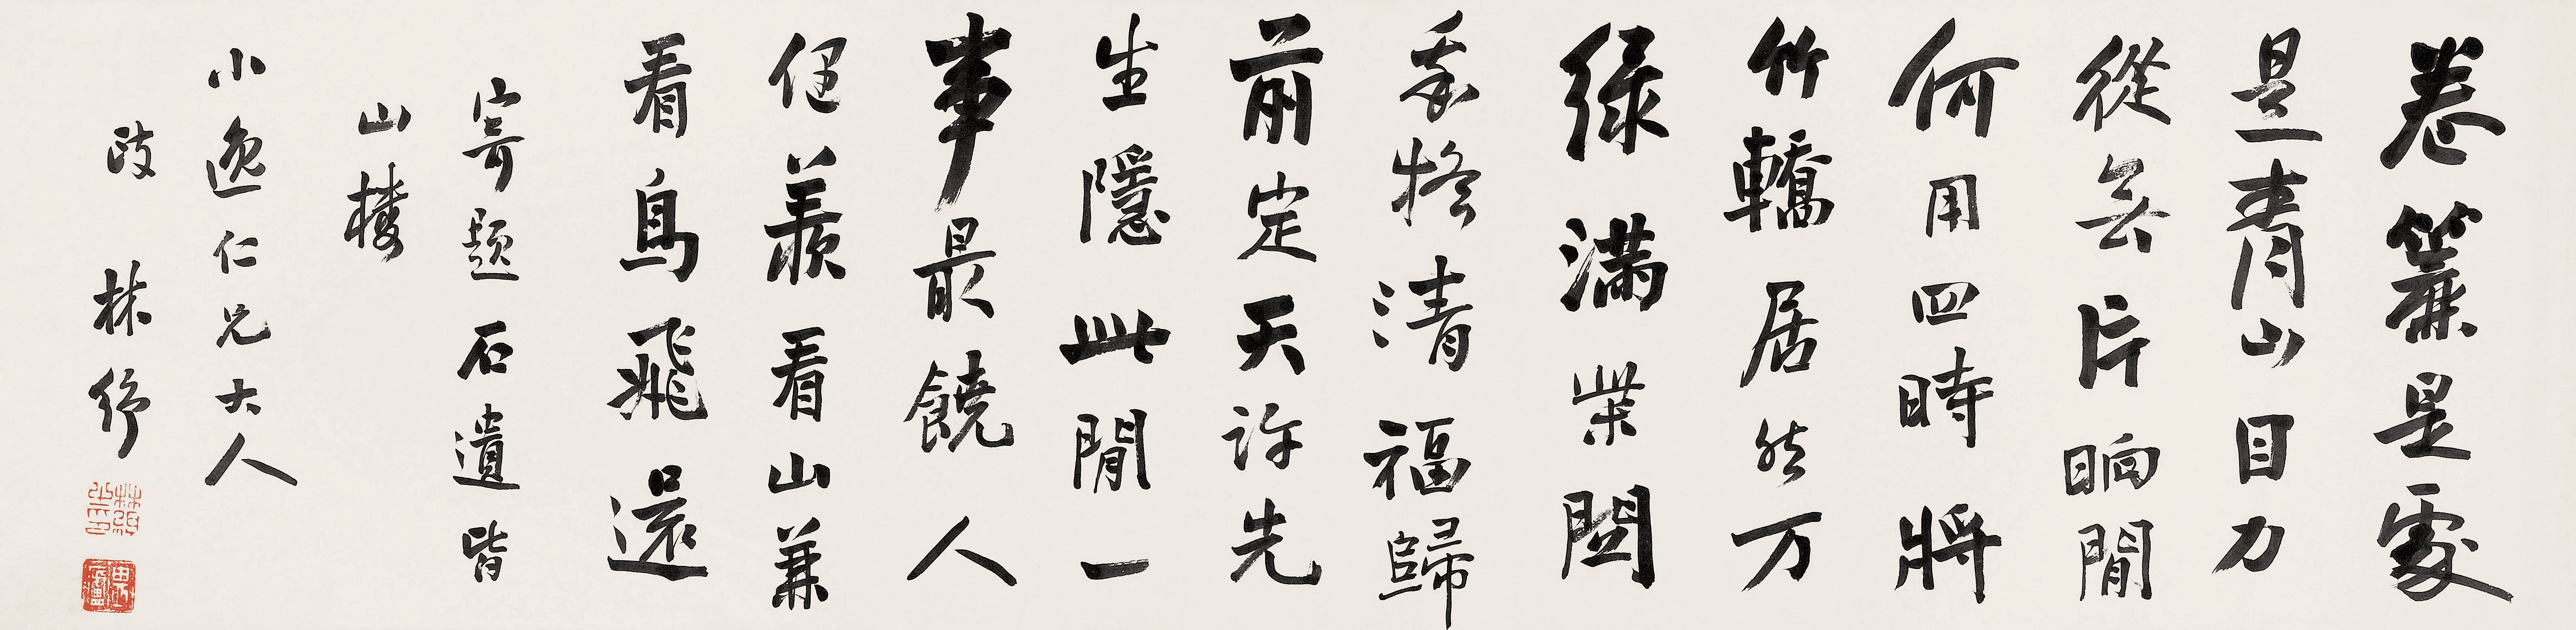 卷簾是處
是青山目力
從無片晌閒
何用四時將
竹轎居然万
綠滿柴關
將清福歸
前定天許先
生隱此閒一
事最饒人
健羨看山兼
看鳥飛還
寄題石遺皆
山樓
小逸仁兄大人
政 林紓
林紓之印
畏廬